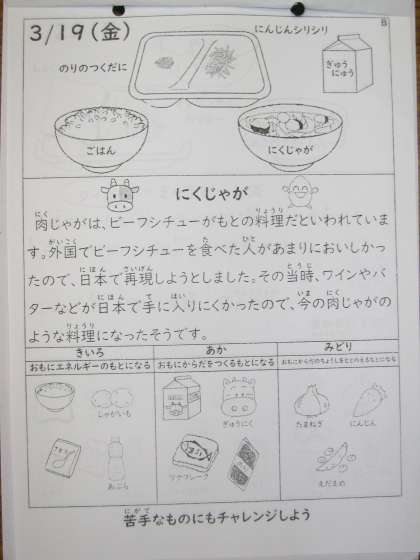 3/19(金)
B
にんじんシリシリ
のりのつくだに
ぎゅう
にゅう
ごはん
にくじゃが
にくじゃが
肉じゃがは、ビーフシチューがもとの料理だといわれていま
す。外国でビーフシチューを食べた人があまりにおいしかっ
たので、日本で再現しようとしました。その当時、ワインやバ
ターなどが日本で手に入りにくかったので、今の肉じゃがの
ような料理になったそうです。
きいろ
あか
みどり
おもにエネルギーのもとになる
おもにからだをつくるもとになる
おもにからだのちょうしをととのえるもとになる
じゃがいも
ぎゅうにく
たまねぎ
にんじん
あぶら
ツナフレーク
えだまめ
苦手なものにもチャレンジしよう